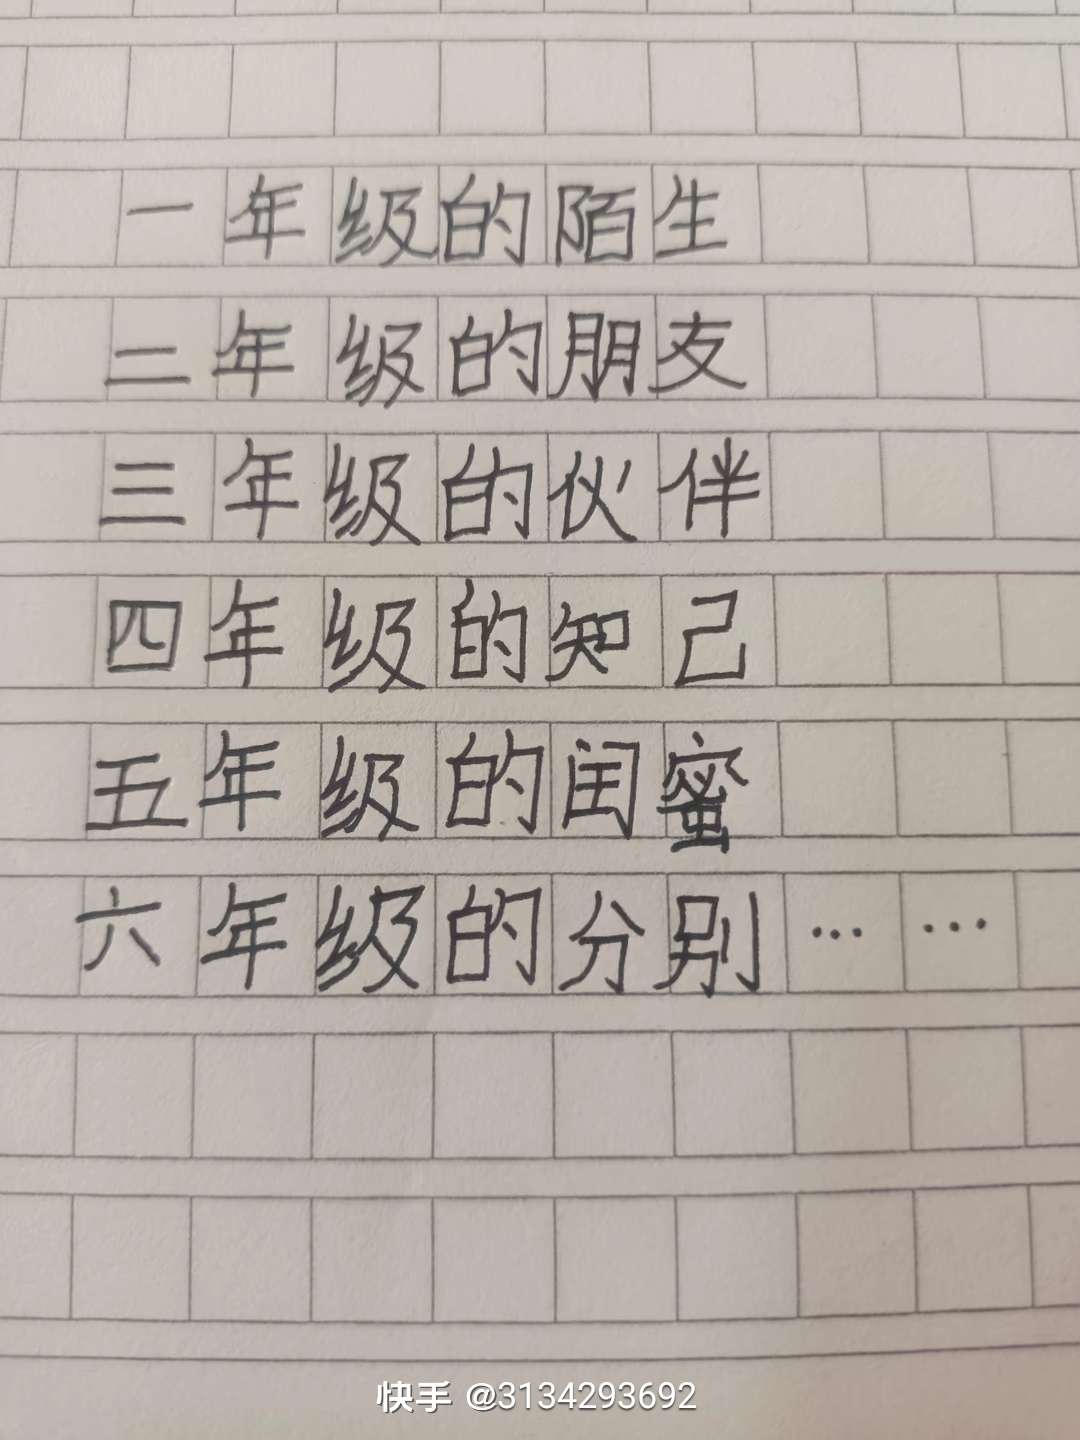 一年级的陌生
二年级的朋友
三年级的伙伴
四年级的知己
五年级的闺蜜
六年级的分别……
快手 @3134293692